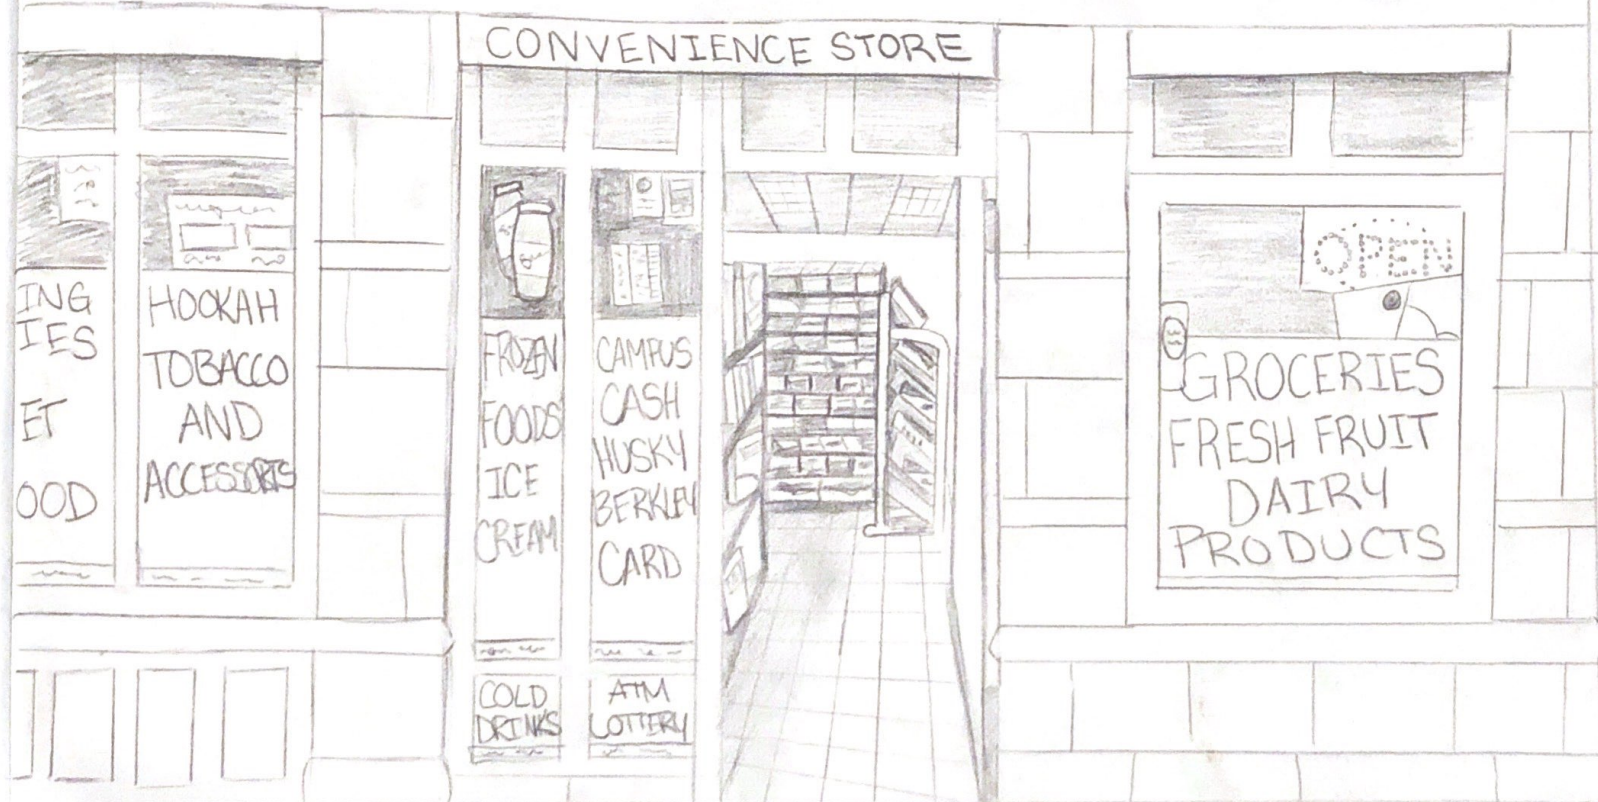 CONVENIENCE STORE
ING
IES
ET
OOD
HOOKAH
TOBACCO
AND
ACCESSORIS
FROZEN
FOODS
ICE
CREAM
COLD
DRINKS
CAMPUS
CASH
HUSKY
BERKLEY
CARD
ATM
LOTTERY
OPEN
GROCERIES
FRESH FRUIT
DAIRY
PRODUCTS